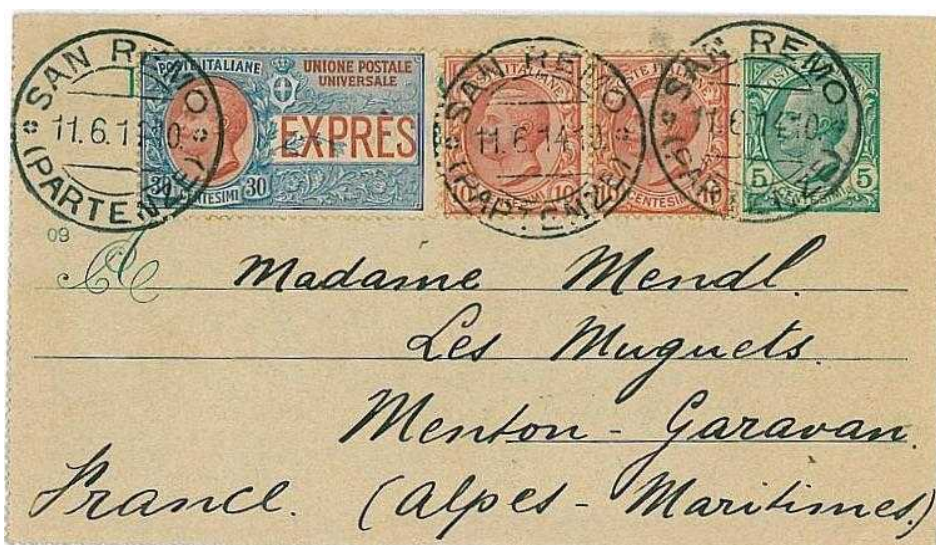 SAN REMO
11.6.14.10.
(PARTENZE)
POSTE ITALIANE
UNIONE POSTALE
UNIVERSALE
EXPRÈS
30 CENTESIMI 30
SAN REMO
11.6.14 10.
(PARTENZE)
10
10
CENTESIMI
SAN REMO
11.6.1410
5 CENTESIMI 5
09
A
Madame Mendl.
Les Muguets.
Menton - Garavan.
France. (Alpes - Maritimes.)